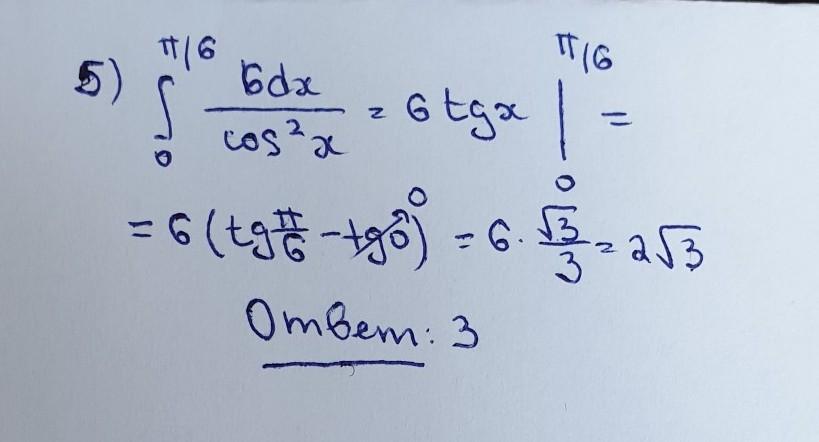 5) ∫₀^(π/6) 6dx / cos²x = 6 tgx |₀^(π/6) =
= 6 (tg π/6 − tg0) ⁰ = 6 · √3/3 = 2√3
Ответ: 3